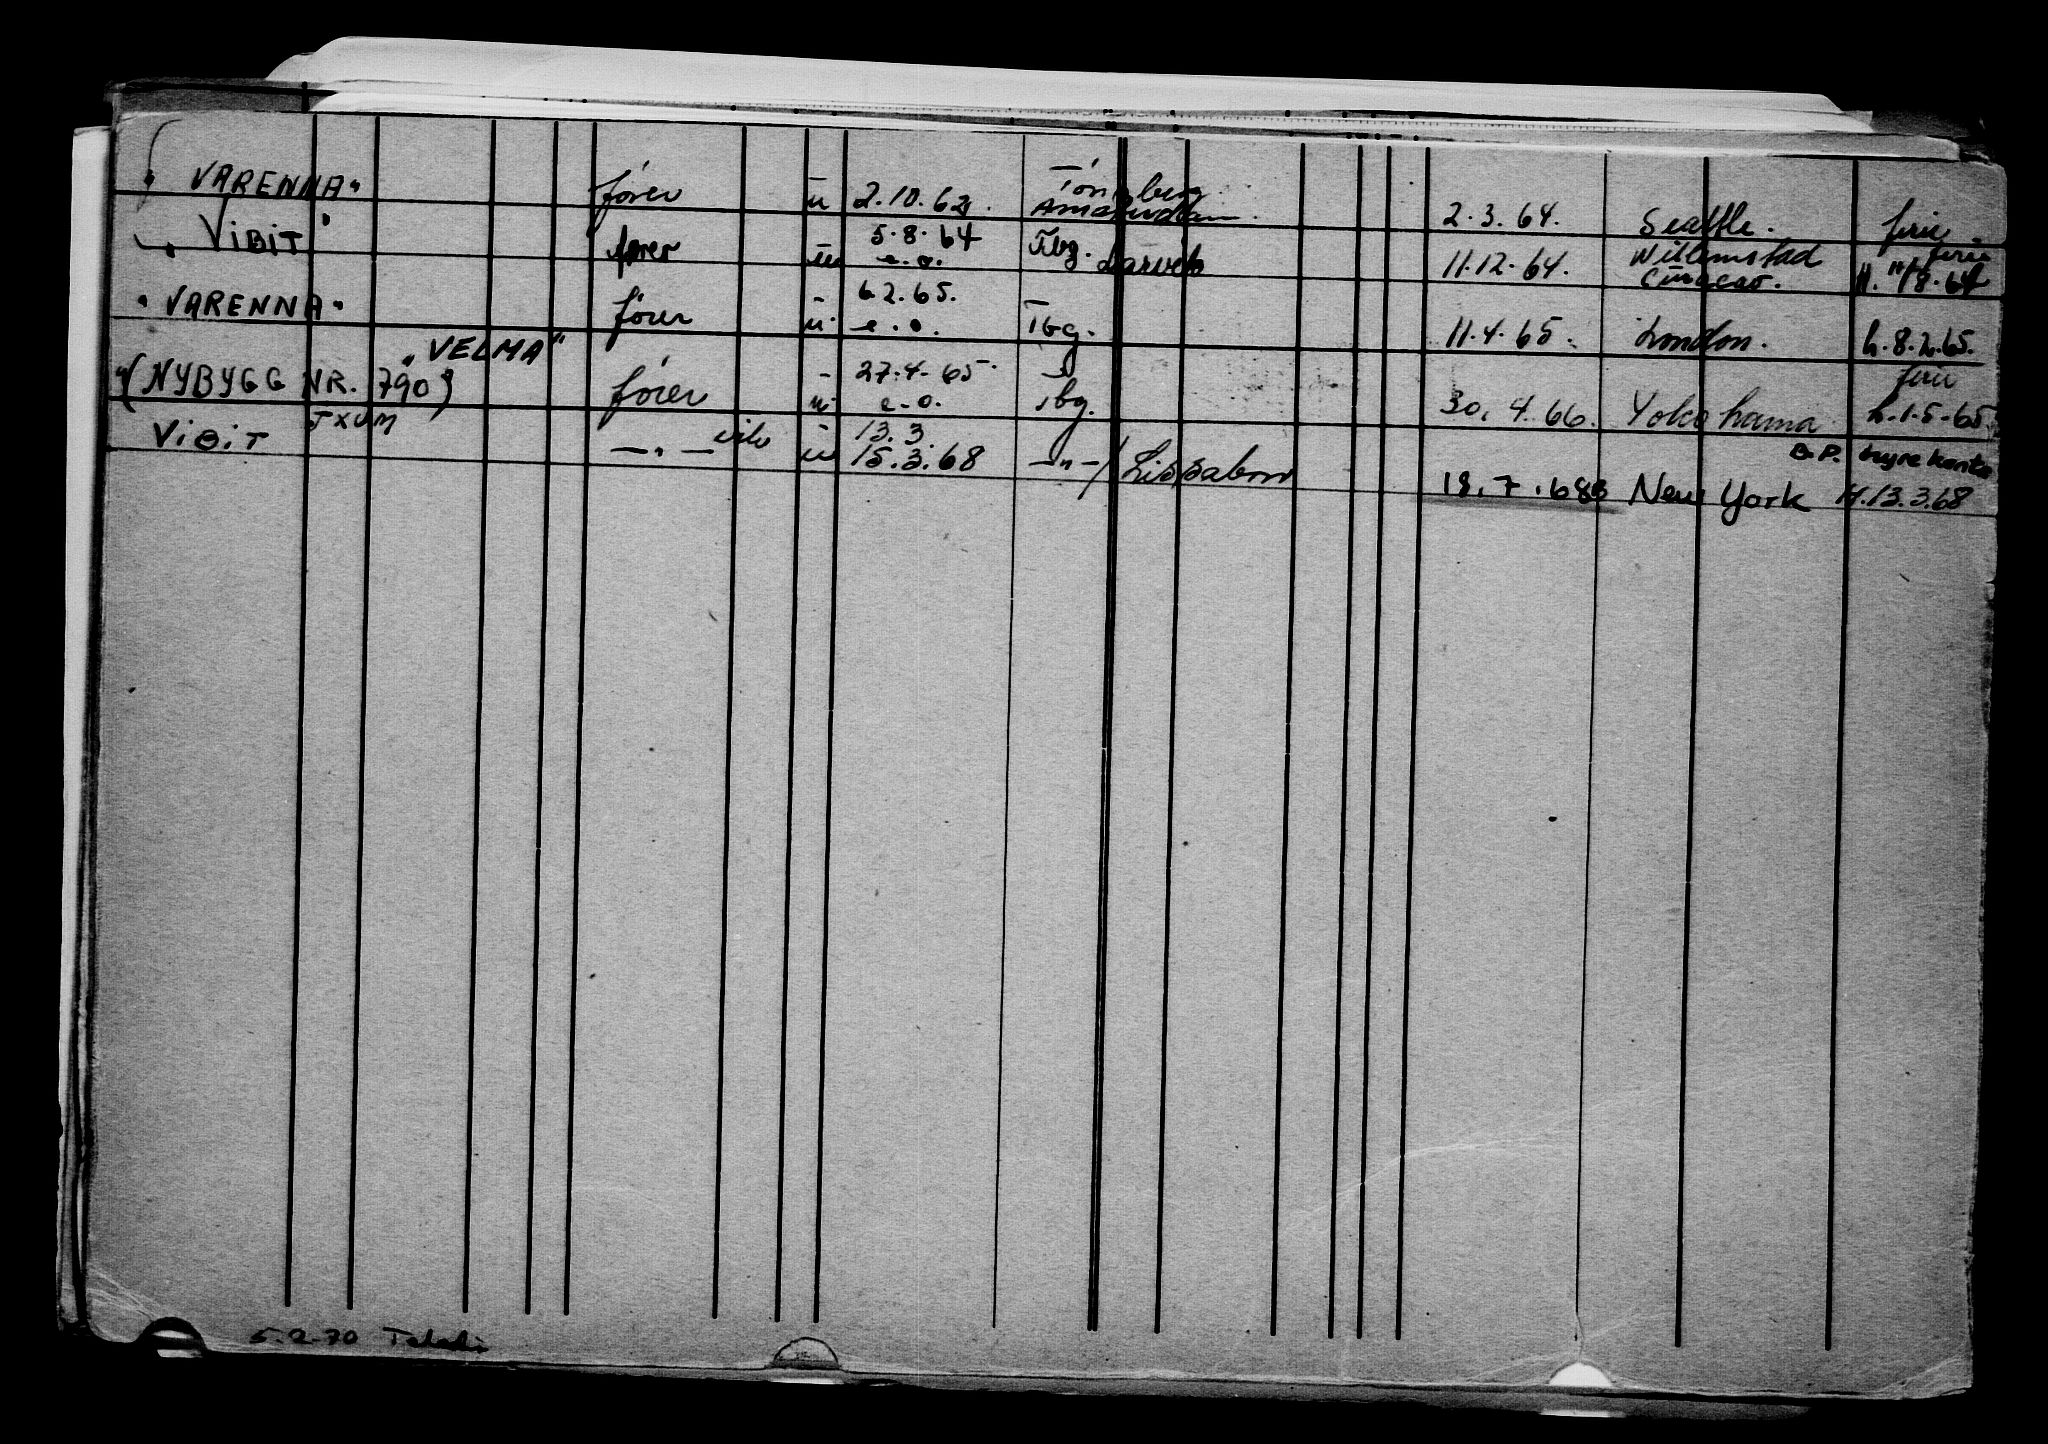 "VARENNA" fører u 2.10.62. Tönsberg Amsterdam. 2.3.64. Seattle. ferie.
"ViBiT" fører u 5.8.64 e.o. Tbg. 11.12.64. Willemstad Curacao. ferie H. 11/8.64
"VARENNA" fører u. 6.2.65. e.o. Tbg. 11.4.65. London. h.8.2.65.
"VELMA"
"(NYBYGG NR. 790) fører u. 27.4.65. e.o. Tbg. 30.4.66. Yokohama ferie h.1.5.65.
ViBiT JXUM —"— u 13.3. 15.3.68 —"—/Lissabon 18.7.68 New York B.P. hyrekonto H.13.3.68
5.2.70